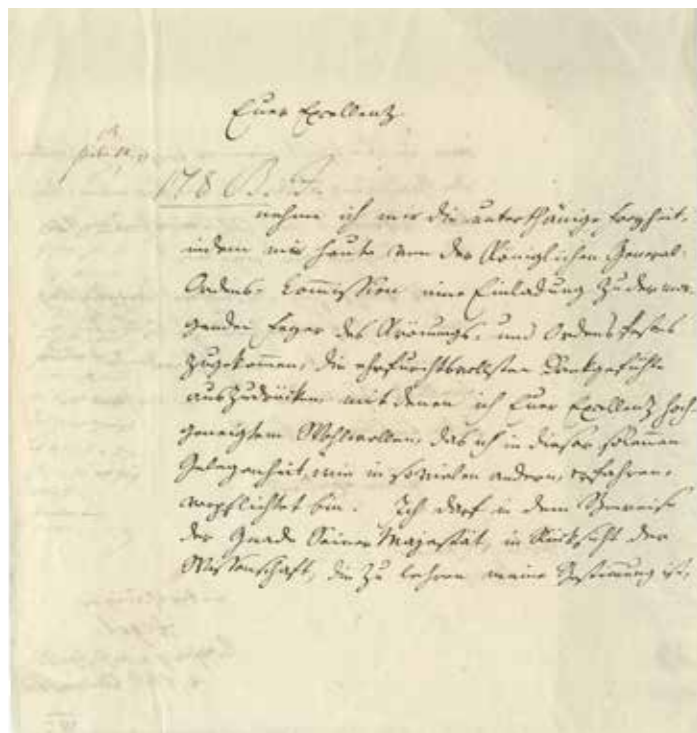 Euer Excellenz
178 B. F.
nehme ich mir die unterthänige Freyheit,
indem mir heute von der Königlichen General-
Ordens-Commission eine Einladung zu der mor-
genden Feyer des Krönungs- und Ordensfestes
zugekommen, die ehrfurchtsvollsten Dankgefühle
auszudrücken, mit denen ich Euer Excellenz hoch
geneigtem Wohlwollen, das ich in dieser solennen
Gelegenheit, wie in so vielen andern, erfahren,
verpflichtet bin. Ich darf in dem Beweise
der Gnade Seiner Majestät, in Rücksicht der
Wissenschaft, die zu lehren meine Bestimmung ist,